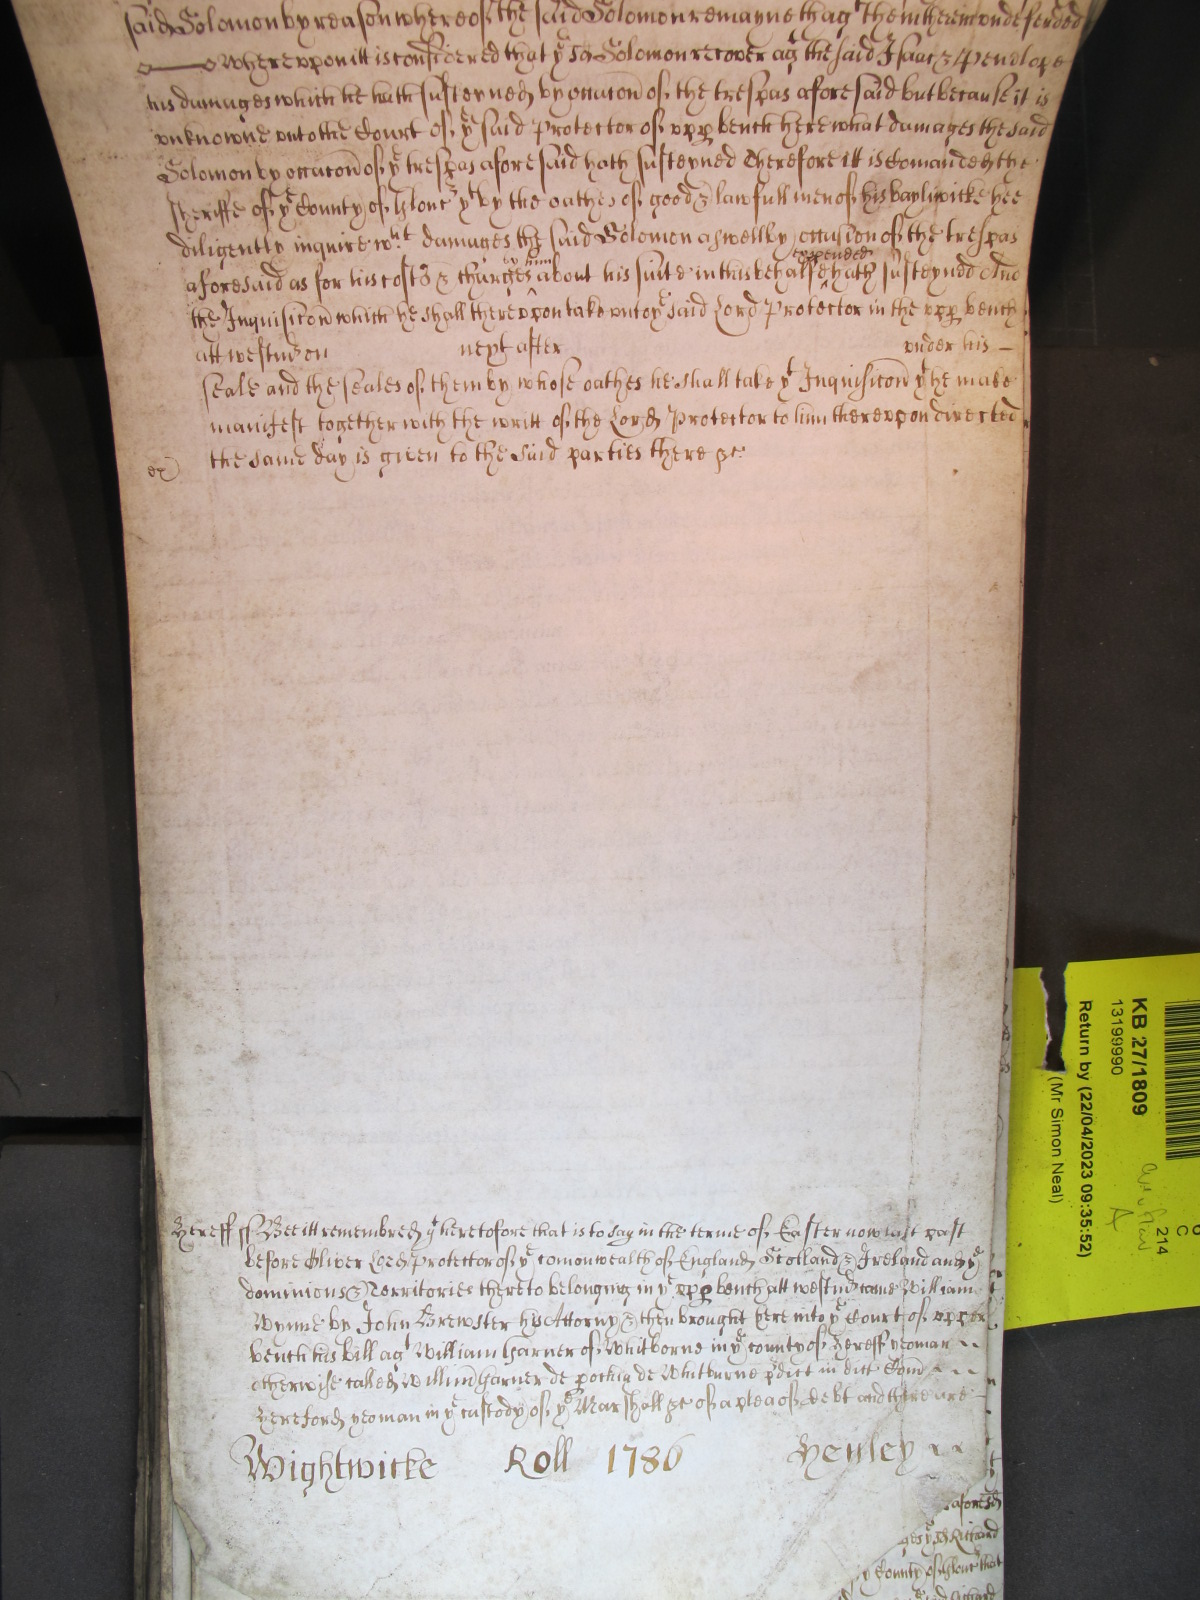 said Solomon by reason whereof the said Solomon remayneth agt them therein undefended
Whereuppon itt is considered that ye sd Solomon recover agt the said Isaac & Penelope
his damages which he hath susteyned by occacon of the trespas aforesaid but because it is
unknowne unto the Court of ye said Protector of upp bench here what damages the said
Solomon by occacon of ye trespas aforesaid hath susteyned Therefore itt is Comanded the
sheriffe of ye County of Glouc yt by the oathes of good & lawfull men of his bayliwicke hee
diligently inquire wht damages the said Solomon aswell by occasion of the trespas
by him expended
aforesaid as for his costs & charges about his suite in this behalfe hath susteyned And
the Inquisicon which he shall thereuppon take unto ye said Lord Protector in the upp bench
att Westm on next after under his
seale and the seales of them by whose oathes he shall take yt Inquisicon yt he make
manifest together with the writt of the Lord Protector to him thereupon directed
ex the same day is given to the said parties there &c
Hereff ss Bee itt remembred yt heretofore that is to say in the terme of Easter now last past
before Oliver Lord Protector of ye comonwealth of England Scotland & Ireland and ye
dominions & Territories thereto belonging in ye upp bench att Westm came William
Wynne by John Brewster his Attorny & then brought here into ye Court of upper
bench his bill agt William Garner of Whitborne in ye county of Hereff yeoman
otherwise called Willim Garner de pochia de Whitburne pdict in dict Com
Hereford yeoman in ye custody of ye Marshall &c of a plea of debt and there are
Wightwicke Roll 1786 Henley
aforesd
ges ye sd Richard
y County of Glouc that
Richard
KB 27/1809
13199990
Return by (22/04/2023 09:35:52)
(Mr Simon Neal)
C
214
A